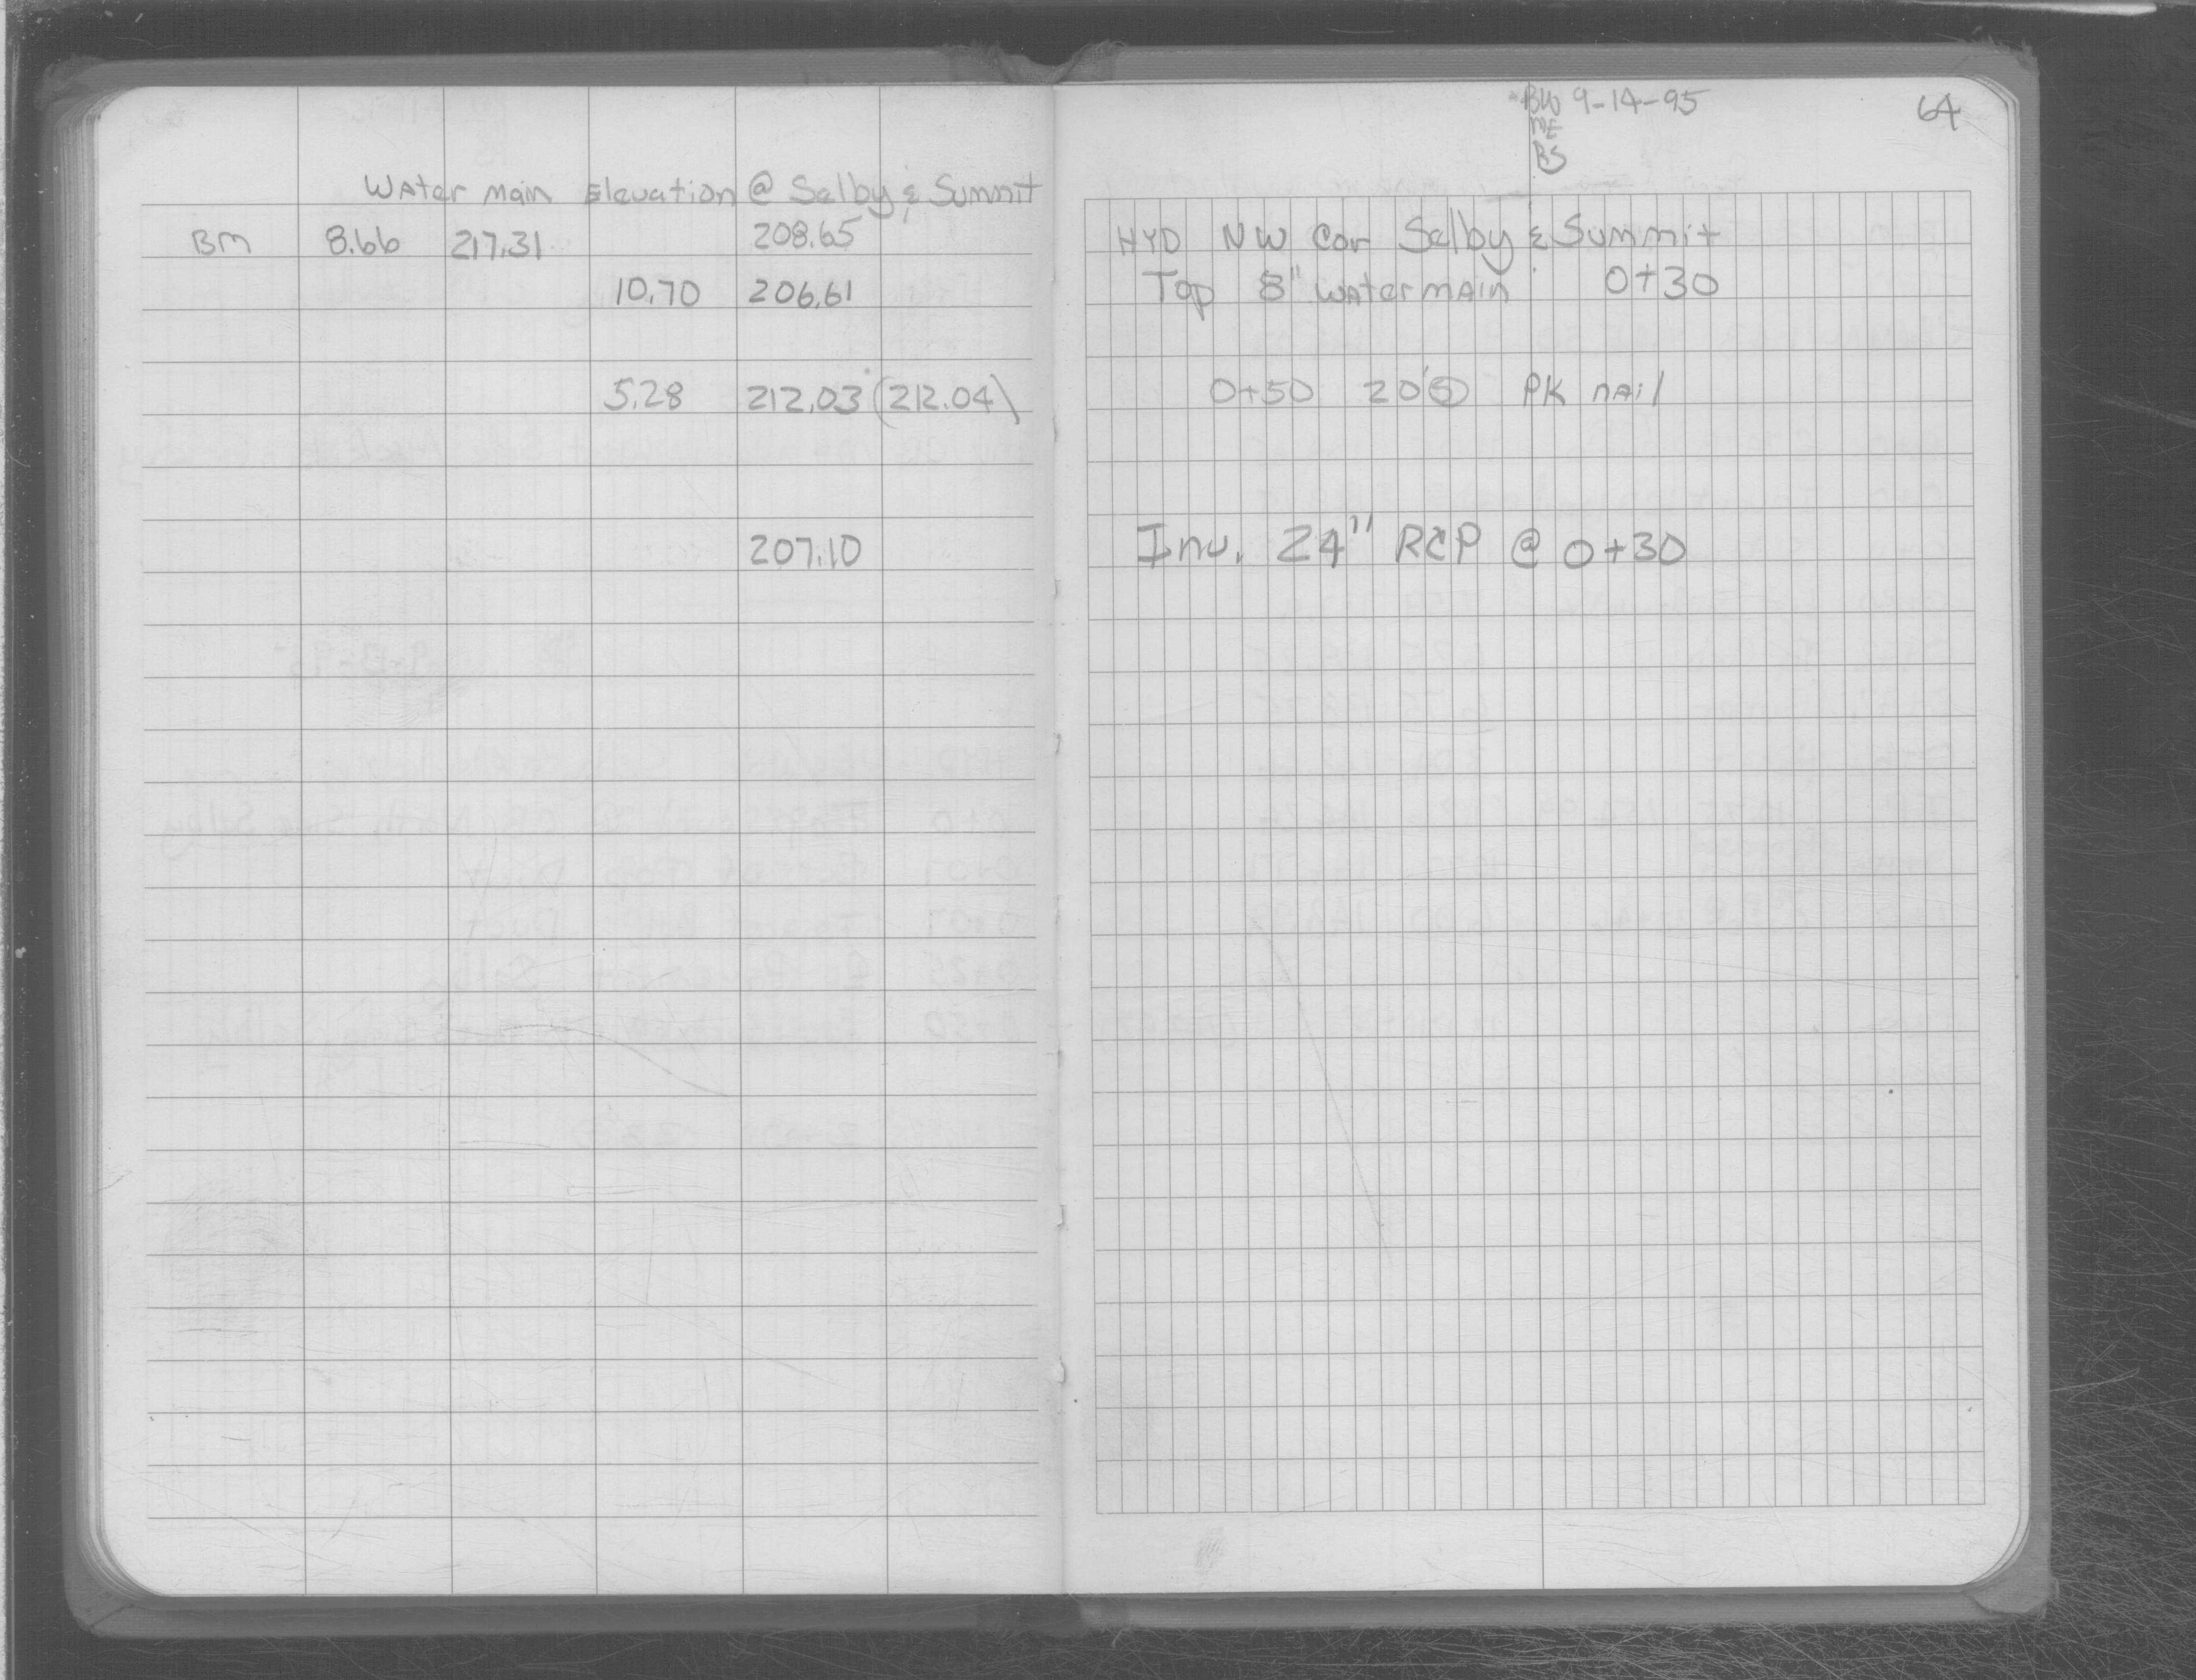 Water main Elevation @ Selby & Summit
BM 8.66 217.31 208.65
10.70 206.61
5.28 212.03 (212.04)
207.10
BW 9-14-95
ME
BS
64
HYD NW Cor Selby & Summit
Top 8" watermain 0+30
0+50 20' PK nail
Inv. 24" RCP @ 0+30